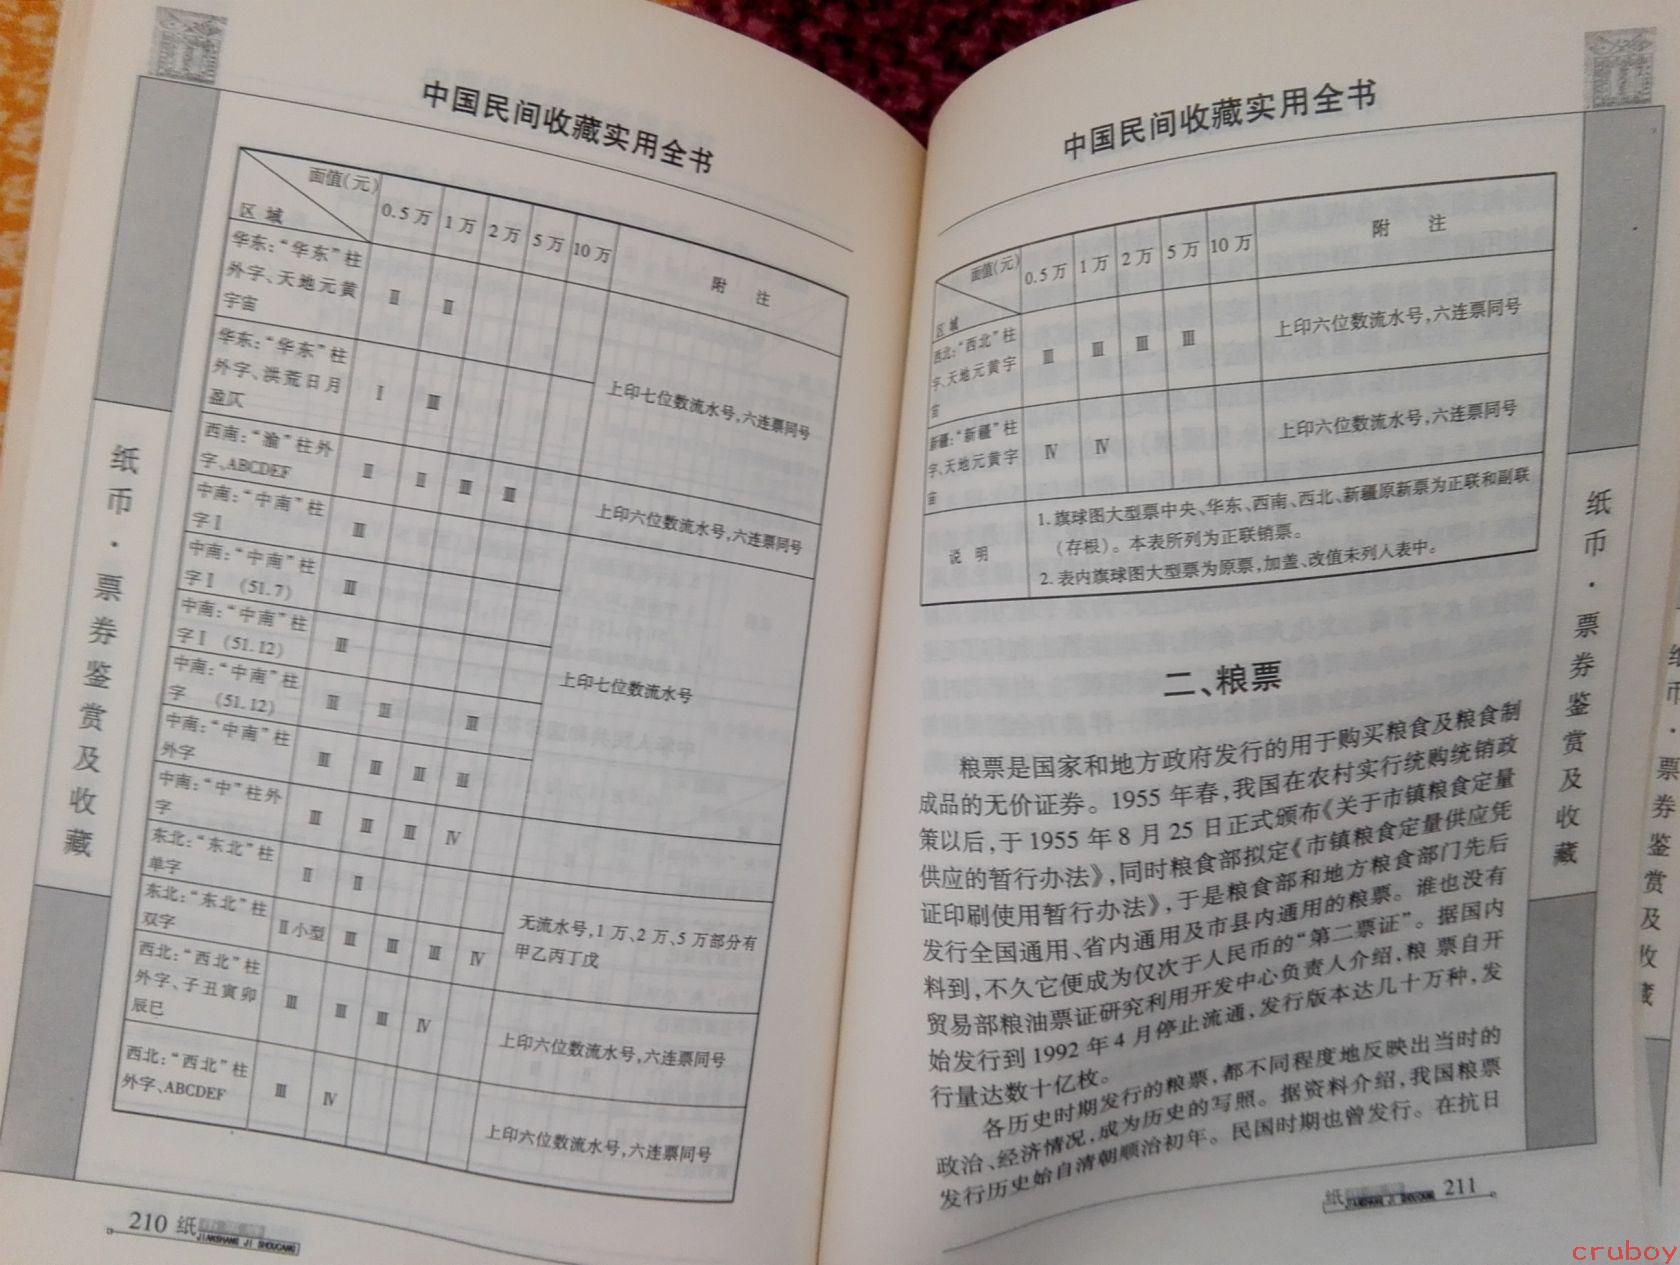 中国民间收藏实用全书
面值(元)
区域
0.5万 1万 2万 5万 10万 附 注
华东:“华东”柱
外字、天地元黄
宇宙
Ⅱ Ⅱ
华东:“华东”柱
外字、洪荒日月
盈仄
Ⅰ Ⅲ
上印七位数流水号,六连票同号
西南:“渝”柱外
字、ABCDEF
Ⅱ Ⅱ Ⅲ Ⅲ
上印六位数流水号,六连票同号
中南:“中南”柱
字Ⅰ
Ⅲ
中南:“中南”柱
字Ⅰ (51.7)
Ⅲ
中南:“中南”柱
字Ⅰ (51.12)
Ⅲ
中南:“中南”柱
字 (51.12)
Ⅲ Ⅲ Ⅲ
上印七位数流水号
中南:“中南”柱
外字
Ⅲ Ⅲ Ⅲ Ⅲ
中南:“中”柱外
字
Ⅲ Ⅲ Ⅲ Ⅳ
东北:“东北”柱
单字
Ⅱ Ⅱ
东北:“东北”柱
双字
Ⅱ小型 Ⅲ Ⅲ Ⅲ Ⅳ
无流水号,1万、2万、5万部分有
甲乙丙丁戊
西北:“西北”柱
外字、子丑寅卯
辰巳
Ⅲ Ⅲ Ⅲ Ⅳ
上印六位数流水号,六连票同号
西北:“西北”柱
外字、ABCDEF
Ⅲ Ⅳ
上印六位数流水号,六连票同号
纸币·票券鉴赏及收藏
210 纸
JIANSHANG JI SHOUCANG
中国民间收藏实用全书
面值(元)
区域
0.5万 1万 2万 5万 10万 附 注
西北:“西北”柱
字、天地元黄宇
宙
Ⅲ Ⅲ Ⅲ Ⅲ
上印六位数流水号,六连票同号
新疆:“新疆”柱
字、天地元黄宇
宙
Ⅳ Ⅳ
上印六位数流水号,六连票同号
说 明
1.旗球图大型票中央、华东、西南、西北、新疆原新票为正联和副联
(存根)。本表所列为正联销票。
2.表内旗球图大型票为原票,加盖、改值未列入表中。
二、粮票
粮票是国家和地方政府发行的用于购买粮食及粮食制
成品的无价证券。1955年春,我国在农村实行统购统销政
策以后,于1955年8月25日正式颁布《关于市镇粮食定量
供应的暂行办法》,同时粮食部拟定《市镇粮食定量供应凭
证印刷使用暂行办法》,于是粮食部和地方粮食部门先后
发行全国通用、省内通用及市县内通用的粮票。谁也没有
料到,不久它便成为仅次于人民币的“第二票证”。据国内
贸易部粮油票证研究利用开发中心负责人介绍,粮 票自开
始发行到1992年4月停止流通,发行版本达几十万种,发
行量达数十亿枚。
各历史时期发行的粮票,都不同程度地反映出当时的
政治、经济情况,成为历史的写照。据资料介绍,我国粮票
发行历史始自清朝顺治初年。民国时期也曾发行。在抗日
纸币·票券鉴赏及收藏
纸
JIANSHANG JI SHOUCANG
211
cruboy